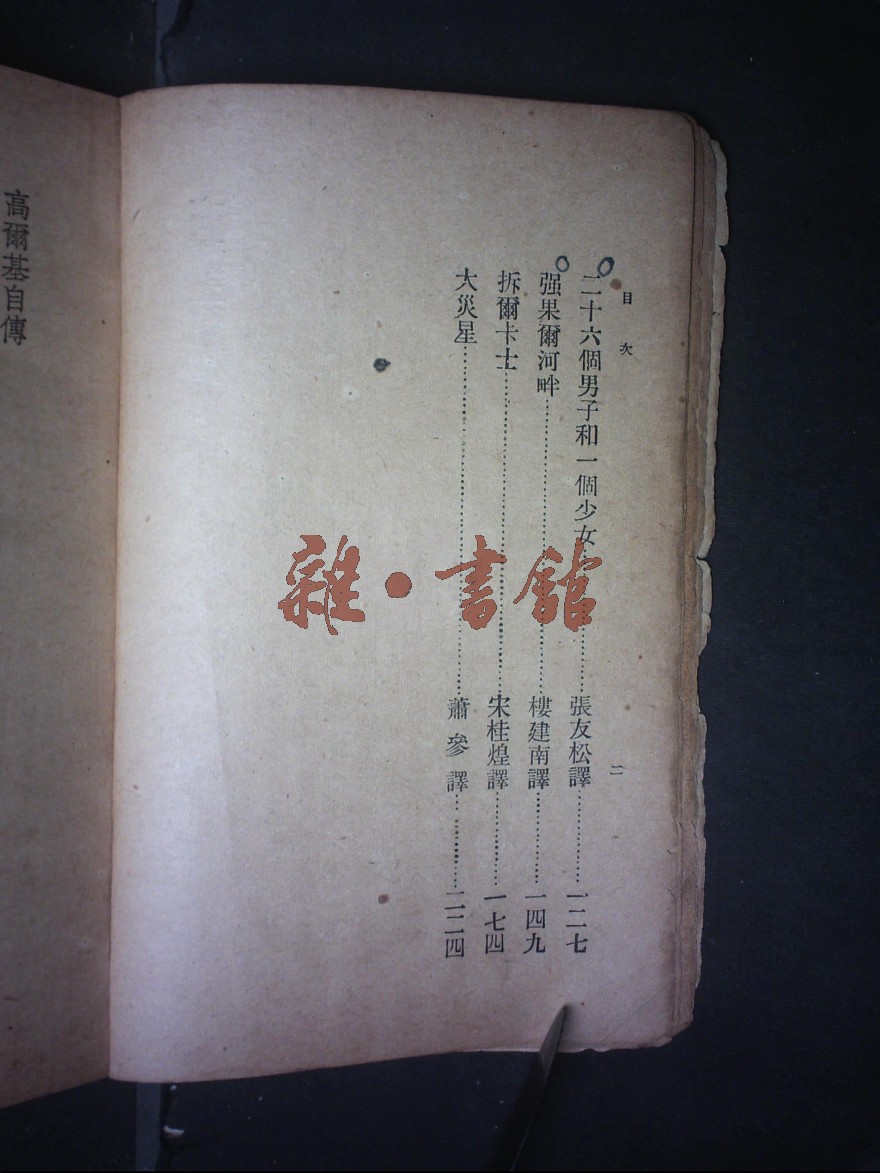 目次
二
二十六個男子和一個少女……張友松譯……一二七
强果爾河畔……樓建南譯……一四九
拆爾卡士……宋桂煌譯……一七四
大災星……蕭參譯……二二四
高爾基自傳
雜·書館